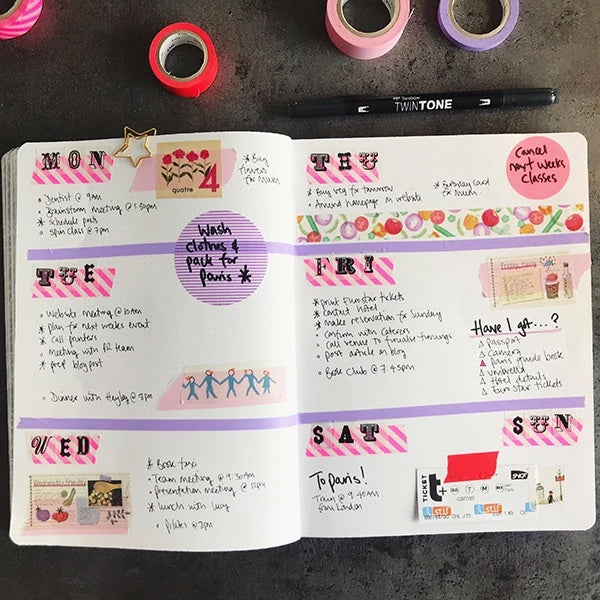 TWINTONE
MON
quatre 4
* Buy
flowers
for Mum
Dentist @ 9am
Brainstorm meeting @ 1:30pm
* Schedule posts
Spin class @ 7pm
Wash
clothes &
pack for
Paris *
TUE
Website meeting @ 10am
* Plan for next weeks event
* Call printers
Meeting with PR team
* Prep blog post
Dinner with Hayley @ 8pm
WED
Wednesday
* Book taxi
Team meeting @ 9:30AM
Presentation meeting @ 12pm
* Lunch with Lucy
Pilates @ 8pm
THU
Cancel
next weeks
classes
* Buy veg for tomorrow
Amend homepage on website
* Birthday card
for Mum
FRI
* Print Eurostar tickets
* Contact hotel
* Make reservation for Sunday
Confirm with caterers
Call venue to finalise timings
Post article on blog
Book Club @ 7:45pm
Friday
Have I got...?
Passport
Camera
Paris guide book
Umbrella
Hotel details
Eurostar tickets
SAT
SUN
To Paris!
Train @ 9:40AM
from London
TICKET
t+
SNCF
stif
stif